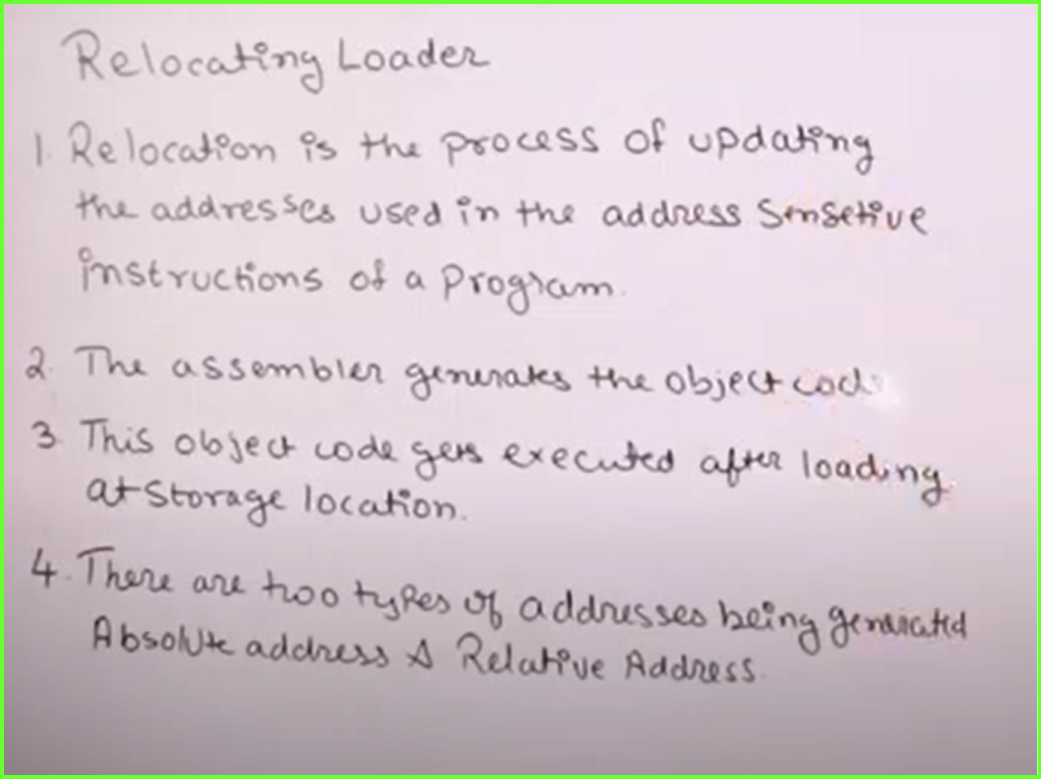 Relocating Loader
1. Relocation is the process of updating
the addresses used in the address Sensetive
instructions of a program.
2. The assembler generates the object code
3 This object code gets executed after loading
at storage location.
4. There are two types of addresses being generated
Absolute address & Relative Address.